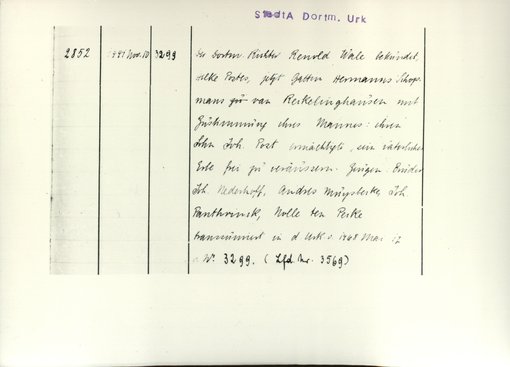 StadtA Dortm. Urk
2852 1447 Nov. 10 3299 Der Dortm. Richter Renold Wale bekundet,
Posten, jetzt Gatten Hermanns Schope-
mans gnt van Reckelinghausen mit
Zustimmung ihres Mannes: ihren
Sohn Joh. Post ermächtigte, sein väterliches
Erbe frei zu veräussern. Zeugen: Bruder
Joh. Nederhoff, Andres Joh.
Nolle ten Perke
transsumiert in d. Urk. v. 1468 Mai 17
Nr. 3299. (Lfd. Nr. 3569)